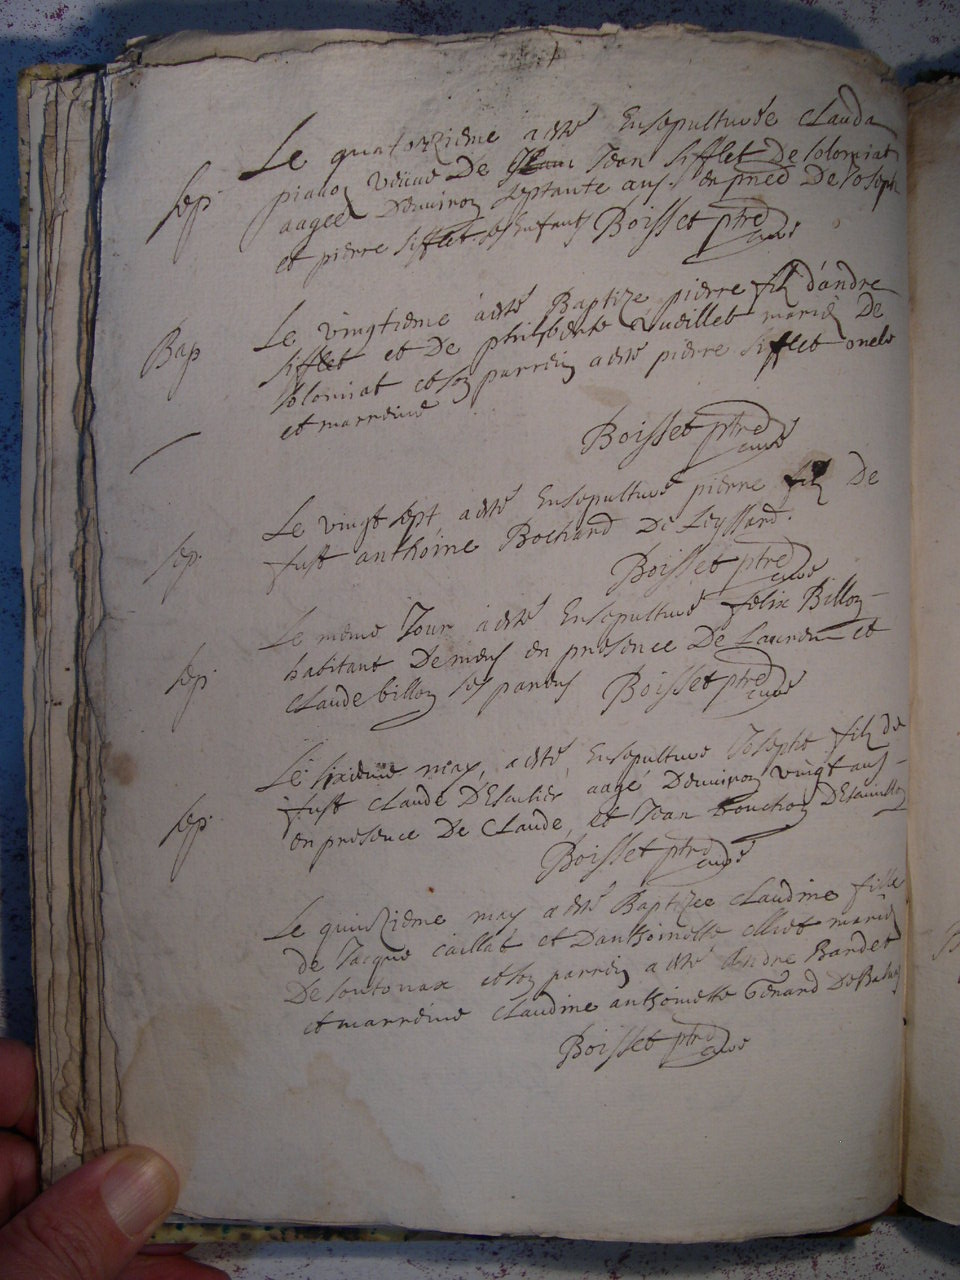 Le quatorzieme a esté Ensepulturée Clauda
sep. piano veuue De Jean Sifflet De Solomiat
aagee Denuiron Septante ans. en pnce De Joseph
et pierre Sifflet ses Enfants Boisset ptre
curé
Le vingtieme a esté Baptize pierre filz d'andre
Bap Sifflet et De philiberte mariés De
Solomiat et son parrein a esté pierre Sifflet oncle
et marreine
Boisset ptre
curé
Le vingt sept a esté Ensepulturé pierre filz De
sep. fust anthoine Bochard De Leyssard.
Boisset ptre
curé
Le meme Jour a esté Ensepulturé felix Billon
sep. habitant De en presence De Laurent et
Claude billon ses parens Boisset ptre
curé
Le sixieme may, a esté, Ensepulturé Joseph filz de
sep. fust Claude aagé Denuiron vingt ans
en presence De Claude, et Jean
Boisset ptre
curé
Le quinzieme may a esté Baptizee Claudine fille
de Jacque Caillat et Danthoinette mariés
De Soutonax et son parrein a esté Andre Bardet
et marreine Claudine anthoinette
Boisset ptre
curé